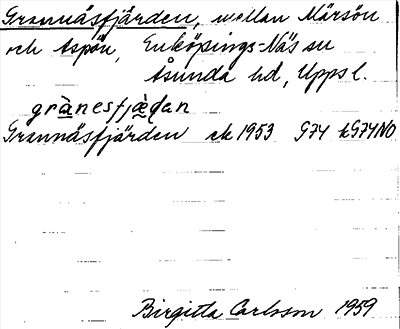 Grannäsfjärden, mellan Märsön
och Aspön, Enköpings-Näs sn
Åsunda hd, Uppsl.
grànesfjæ̀ḍan
Grannäsfjärden ek 1953 G74 kG74NO
Birgitta Carlsson 1959